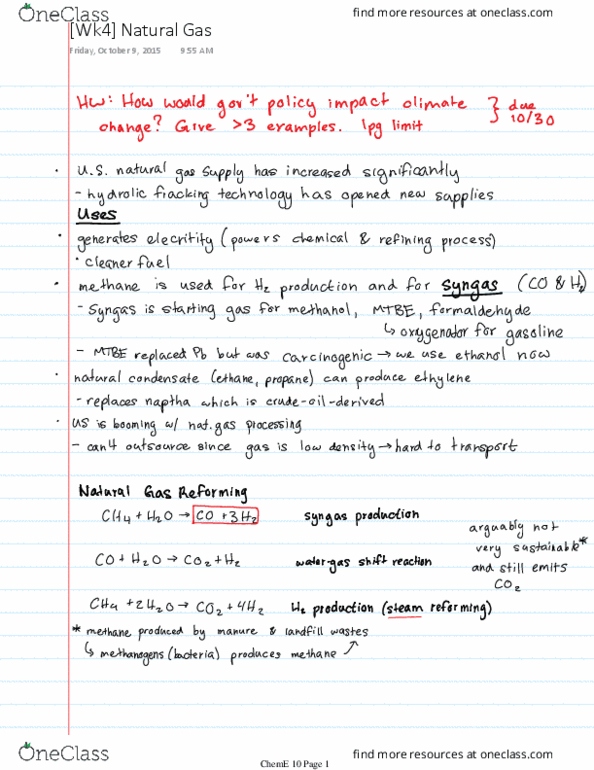 OneClass
find more resources at oneclass.com
[Wk4] Natural Gas
Friday, October 9, 2015 9:55 AM
HW: How would gov't policy impact climate } due
change? Give >3 examples. 1pg limit 10/30
• U.S. natural gas supply has increased significantly
- hydrolic fracking technology has opened new supplies
Uses
• generates elecritity (powers chemical & refining process)
• cleaner fuel
• methane is used for H₂ production and for syngas (CO & H₂)
- Syngas is starting gas for methanol, MTBE, formaldehyde
↳ oxygenator for gasoline
- MTBE replaced Pb but was carcinogenic → we use ethanol now
• natural condensate (ethane, propane) can produce ethylene
- replaces naptha which is crude-oil-derived
• US is booming w/ nat. gas processing
- can't outsource since gas is low density → hard to transport
Natural Gas Reforming
CH₄ + H₂O → CO + 3H₂ syngas production
CO + H₂O → CO₂ + H₂ water-gas shift reaction
CH₄ + 2H₂O → CO₂ + 4H₂ H₂ production (steam reforming)
arguably not
very sustainable*
and still emits
CO₂
* methane produced by manure & landfill wastes
↳ methanogens (bacteria) produces methane
OneClass
find more resources at oneclass.com
ChemE 10 Page 1